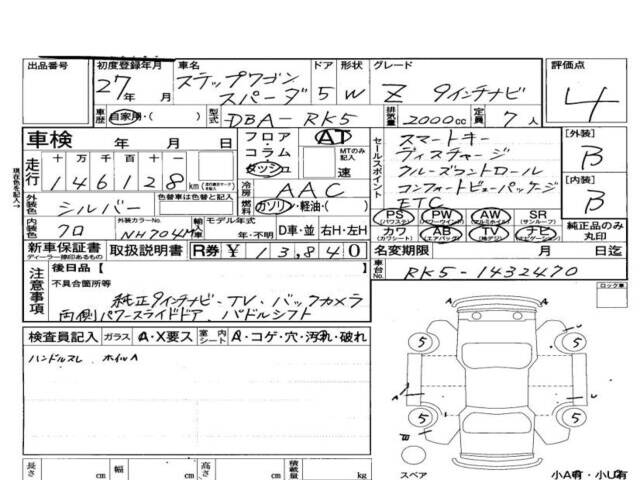 出品番号 初度登録年月 車名 ドア 形状 グレード 評価点
27年 月 ステップワゴン スパーダ 5 W Z 9インチナビ 4
車歴 自家用・( ) 型式 DBA-RK5 排気量 2000cc 定員 7人
車検 年 月 日 フロア・コラム・ダッシュ AT MTのみ記入 速
セールスポイント スマートキー
ディスチャージ
クルーズコントロール
コンフォートビューパッケージ
ETC
[外装] B
[内装] B
現在色を記入→
走行 十万千百十 146128 km
冷房 AAC
外装色 シルバー 色替車は色替と記入 燃料 ガソリン・軽油・( )
PS (パワステ) PW (パワーウインド) AW (アルミホイル) SR (サンルーフ)
カワ (カワシート) AB (エアバック) TV ナビ (ナビゲーション)
純正品のみ丸印
内装色 クロ 外装カラーNo. NH704M 輸入車 モデル年式 年・不明 D車・並 右H・左H
新車保証書 ディーラー捺印あるもの 取扱説明書 R券 ¥13,840
名変期限 月 日迄
車台No. RK5-1432470
注意事項 後日品【 】
不具合箇所等
純正9インチナビ・TV・バックカメラ
両側パワースライドドア、パドルシフト
ロック車
検査員記入 ガラス A・X要ス 室内シート A・コゲ・穴・汚れ・破れ
ハンドルスレ ホイルA
5 5 5 5
A A U U
B
スペア
小A有・小U有
長さ cm 幅 cm 高さ cm 積載量 kg